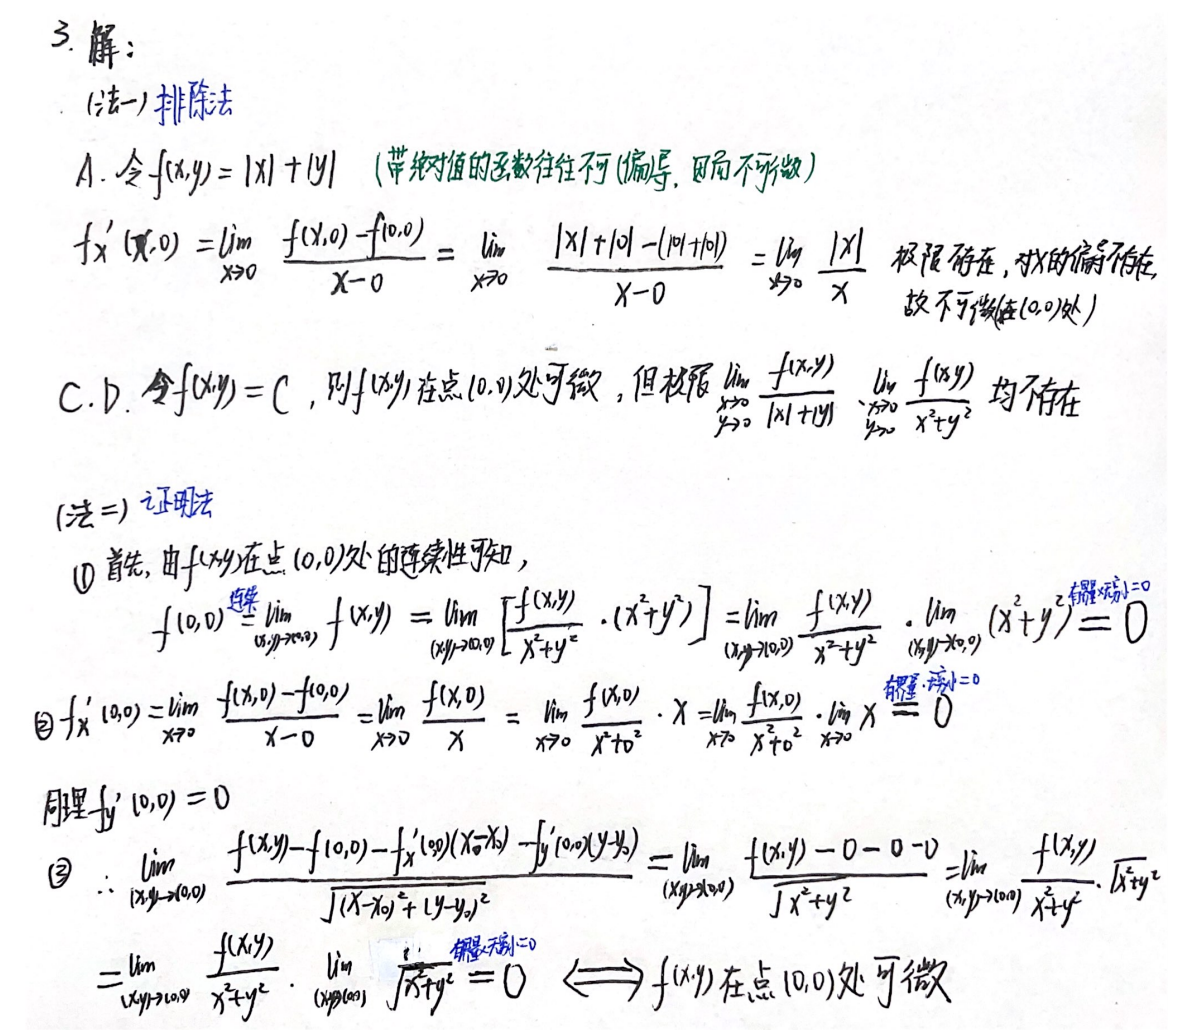 3. 解：
(法一) 排除法
A. 令 f(x,y) = |x| + |y| (带绝对值的函数往往不可(偏)导, 因而不可微)
fx'(x,0) = lim x→0 f(x,0) - f(0,0) / x-0 = lim x→0 |x|+|0| - (|0|+|0|) / x-0 = lim x→0 |x| / x 极限不存在, 对x的偏导不存在,
故不可微(在(0,0)处)
C.D. 令 f(x,y) = C, 则 f(x,y) 在点(0,0)处可微, 但极限 lim x→0 y→0 f(x,y) / |x|+|y| . lim x→0 y→0 f(x,y) / x²+y² 均不存在
(法二) 证明法
① 首先, 由f(x,y)在点(0,0)处的连续性可知,
f(0,0) 连续= lim (x,y)→(0,0) f(x,y) = lim (x,y)→(0,0) [ f(x,y) / x²+y² · (x²+y²) ] = lim (x,y)→(0,0) f(x,y) / x²+y² · lim (x,y)→(0,0) (x²+y²) 有界量×无穷小=0 = 0
② fx'(0,0) = lim x→0 f(x,0) - f(0,0) / x-0 = lim x→0 f(x,0) / x = lim x→0 f(x,0) / x²+0² · x = lim x→0 f(x,0) / x²+0² · lim x→0 x 有界量·无穷小=0 = 0
同理 fy'(0,0) = 0
③ ∴ lim (x,y)→(0,0) f(x,y) - f(0,0) - fx'(0,0)(x-x₀) - fy'(0,0)(y-y₀) / √(x-x₀)²+(y-y₀)² = lim (x,y)→(0,0) f(x,y) - 0 - 0 - 0 / √x²+y² = lim (x,y)→(0,0) f(x,y) / x²+y² · √x²+y²
= lim (x,y)→(0,0) f(x,y) / x²+y² · lim (x,y)→(0,0) √x²+y² 有界量×无穷小=0 = 0 ⟺ f(x,y) 在点(0,0)处可微